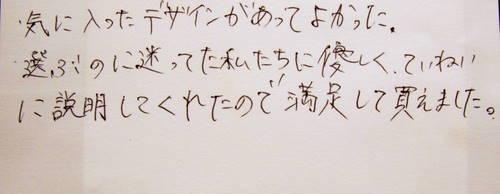 気に入ったデザインがあってよかった。
選ぶのに迷ってた私たちに優しく、ていねい
に説明してくれたので満足して買えました。